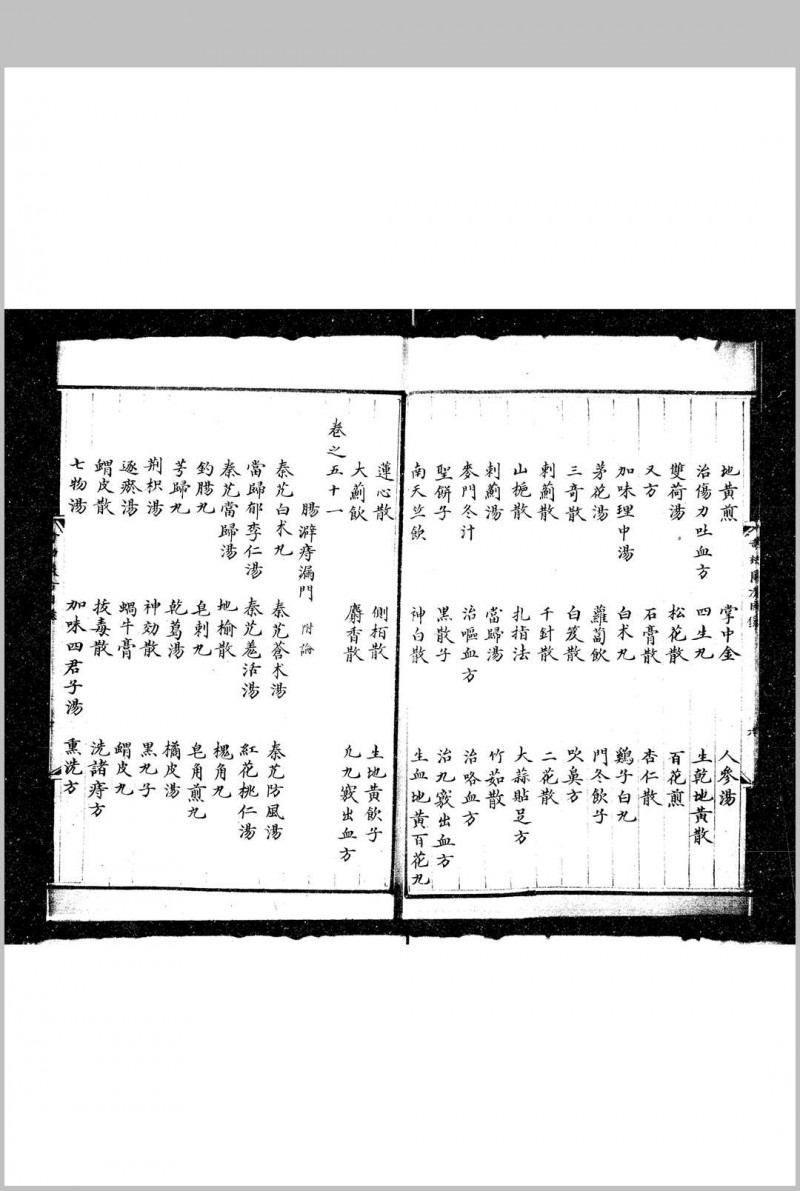 地黃煎 掌中金 人參湯
治傷力吐血方 四生丸 生乾地黃散
雙荷湯 松花散 百花煎
又方 石膏散 杏仁散
加味理中湯 白朮丸 鷄子白丸
茅花湯 蘿蔔飲 門冬飲子
三奇散 白芨散 吹鼻方
刺薊散 千針散 二花散
山梔散 扎指法 大蒜貼足方
刺薊湯 當歸湯 竹茹散
麥門冬汁 治嘔血方 治咯血方
聖餅子 黑散子 治九竅出血方
南天竺飲 神白散 生血地黃百花丸
蓮心散 側栢散 生地黃飲子
大薊飲 麝香散 九竅出血方
卷之五十一
腸澼痔漏門 附論
秦艽白朮丸 秦艽蒼朮湯 秦艽防風湯
當歸郁李仁湯 秦艽羌活湯 紅花桃仁湯
秦艽當歸湯 地榆散 槐角丸
釣腸丸 皂刺丸 皂角煎丸
芎歸丸 乾葛湯 橘皮湯
荊枳湯 神効散 黑丸子
逐瘀湯 蝸牛膏 蝟皮丸
蝟皮散 拔毒散 洗諸痔方
七物湯 加味四君子湯 熏洗方